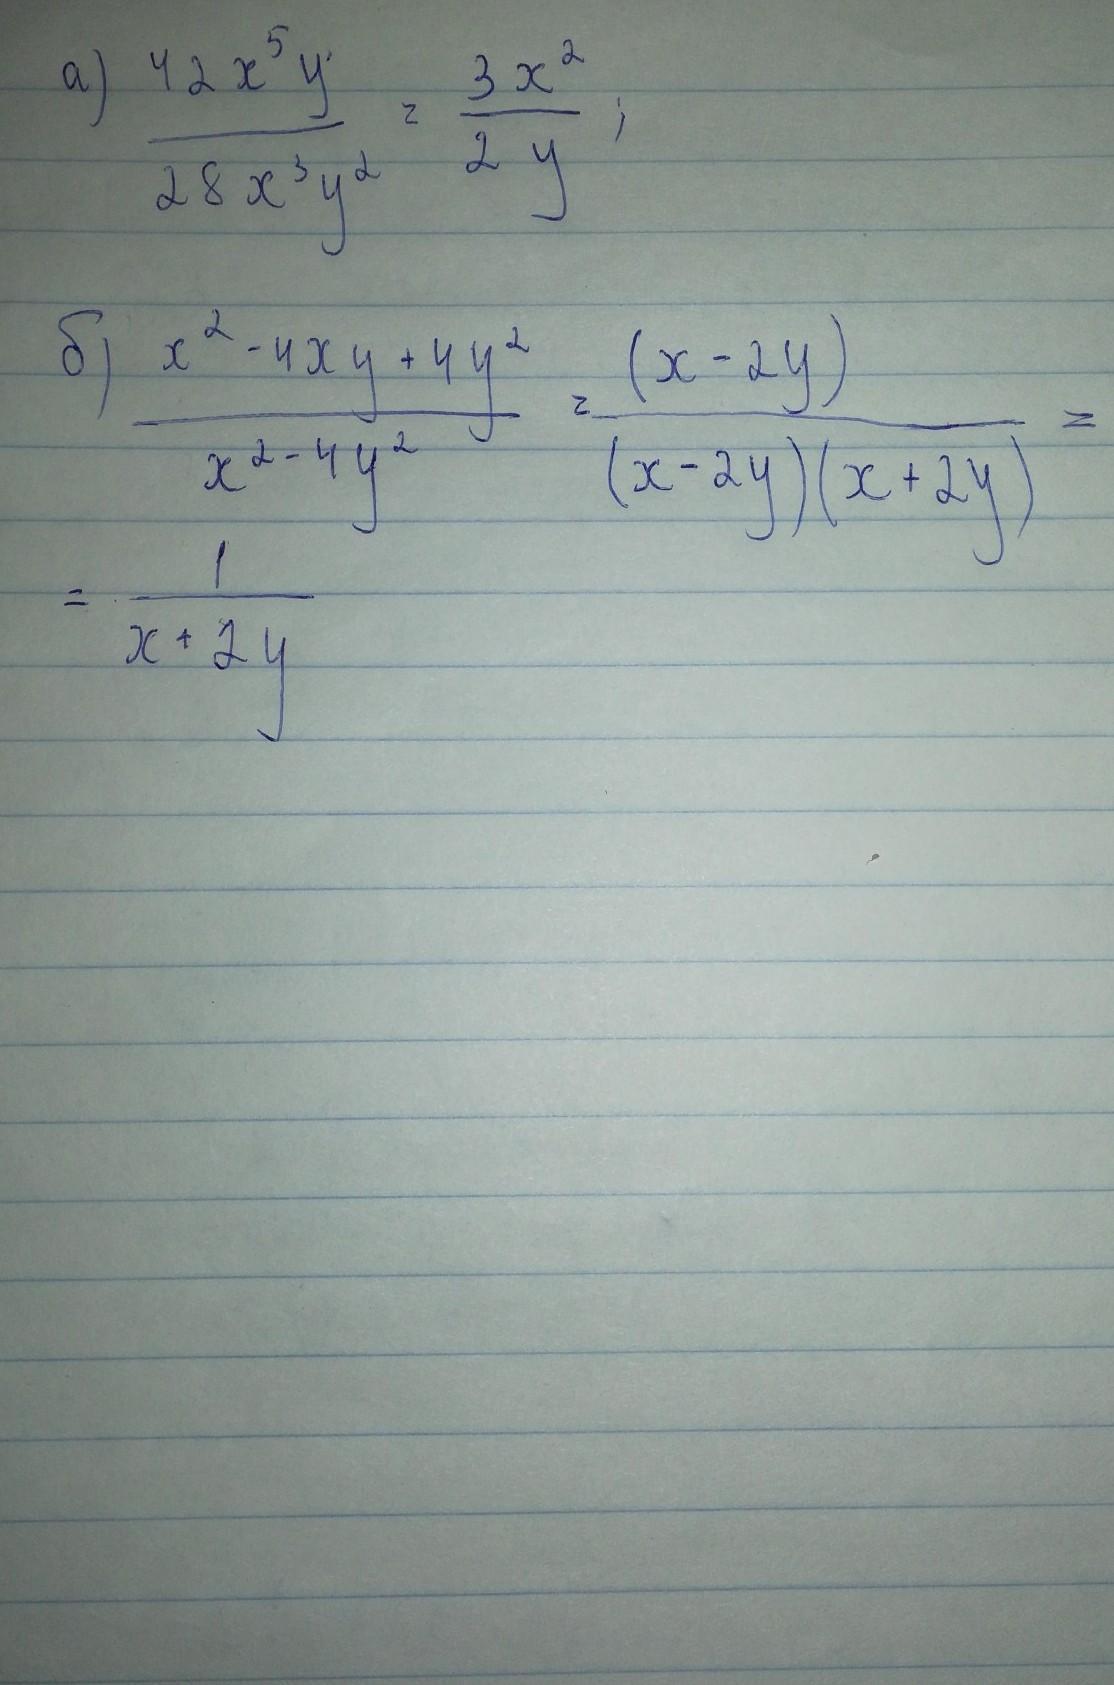 а) 42x⁵y / 28x³y² = 3x² / 2y ;
б) x²-4xy+4y² / x²-4y² = (x-2y) / (x-2y)(x+2y) =
= 1 / x+2y